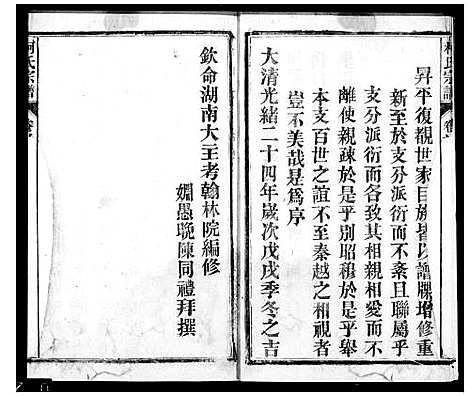 柯氏宗譜
昇平復覩世家巨族皆以譜牒增修重
新至於支分派衍而不紊且聯屬乎
支分派衍而各致其相親相愛而不
離使親疎於是乎別昭穆於是乎舉
本支百世之誼不至秦越之相視者
豈不美哉是爲序
大清光緒二十四年歲次戊戌季冬之吉
欽命湖南大主考翰林院編修
姻愚晚陳同禮拜撰
柯氏宗譜